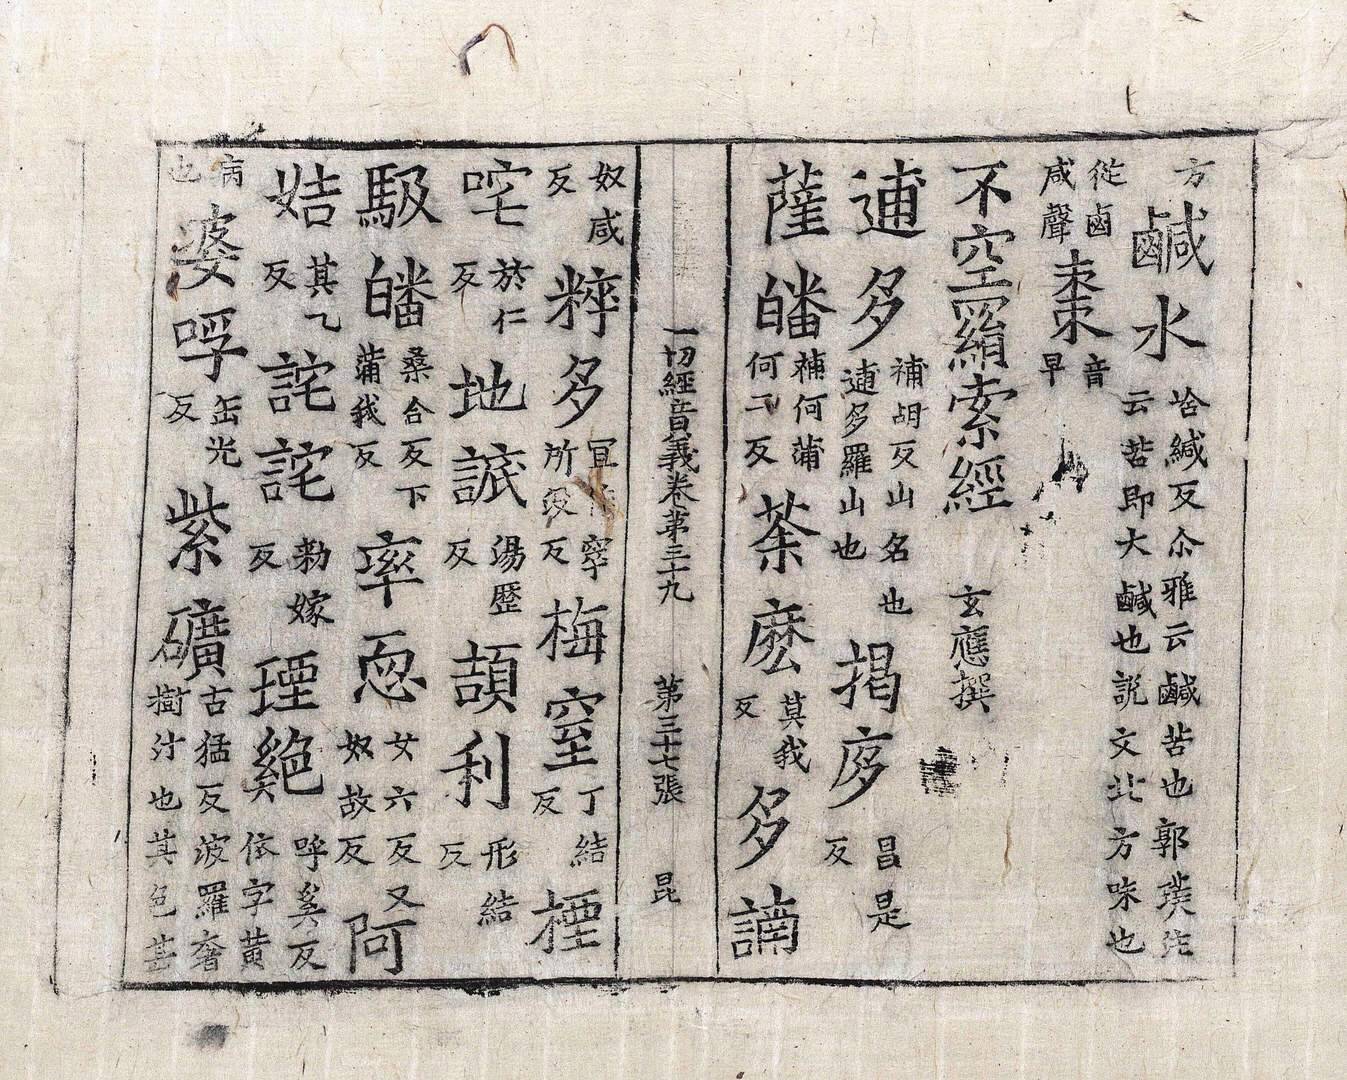 方鹹水洽緘反尒雅云鹹苦也郭璞注云苦即大鹹也說文北方味也
從鹵咸聲棗音早
不空羂索經 玄應撰
逋多補胡反山名也逋多羅山也揭㢋昌是反
薩皤補何蒲何二反荼麽莫我反多諵
一切經音義卷第三十九 第三十七張 昆
奴咸反粹多所反梅窒丁結反桎
咤於仁反地謕湯歷反頡利形結反
馺皤桑合反下蒲我反率恧女六反又奴故反阿
姞其乙反詫詫勑嫁反堙絕呼奚反依字黃
病也婆呼缶光反紫礦古猛反波羅奢樹汁也其色甚